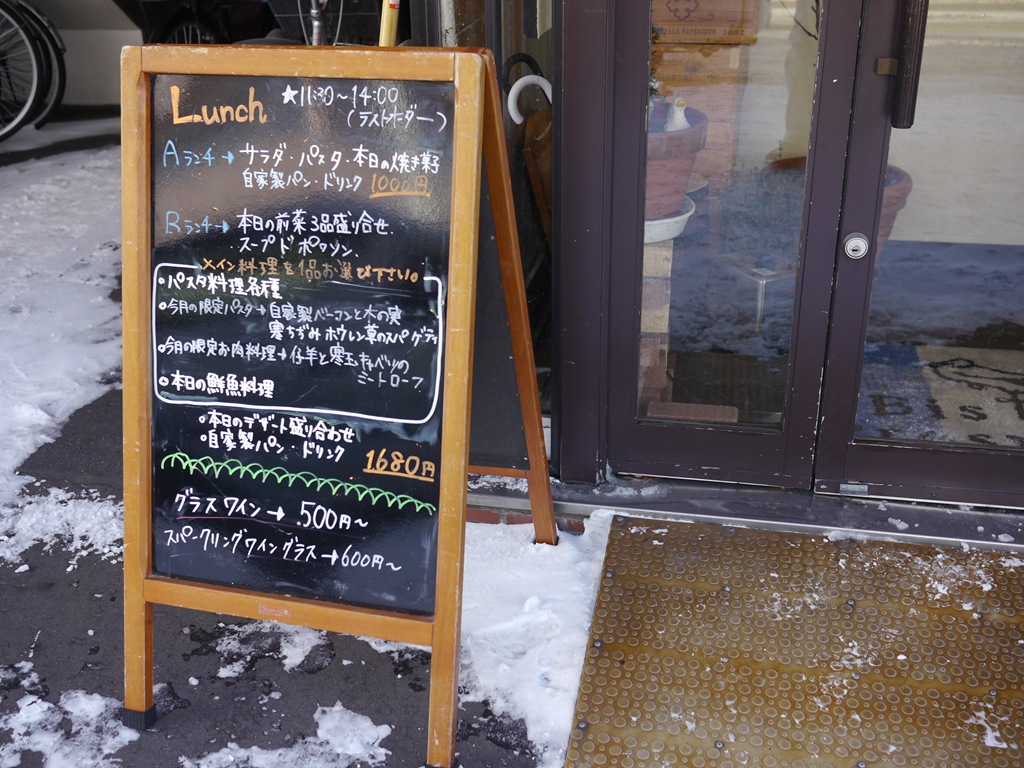 Lunch ★11:30～14:00
(ラストオーダー)
Aランチ→サラダ・パスタ・本日の焼き菓子
自家製パン・ドリンク 1000円
Bランチ→本日の前菜3品盛り合せ.
スープドポワソン、
メイン料理を1品お選び下さい。
・パスタ料理各種
・今月の限定パスタ→自家製ベーコンと木の実
寒ちぢみホウレン草のスパゲティ
・今月の限定お肉料理→仔羊と寒玉キャベツの
ミートローフ
・本日の鮮魚料理
・本日のデザート盛り合わせ
・自家製パン・ドリンク
1680円
グラスワイン→500円～
スパークリングワイングラス→600円～
2002
Bist